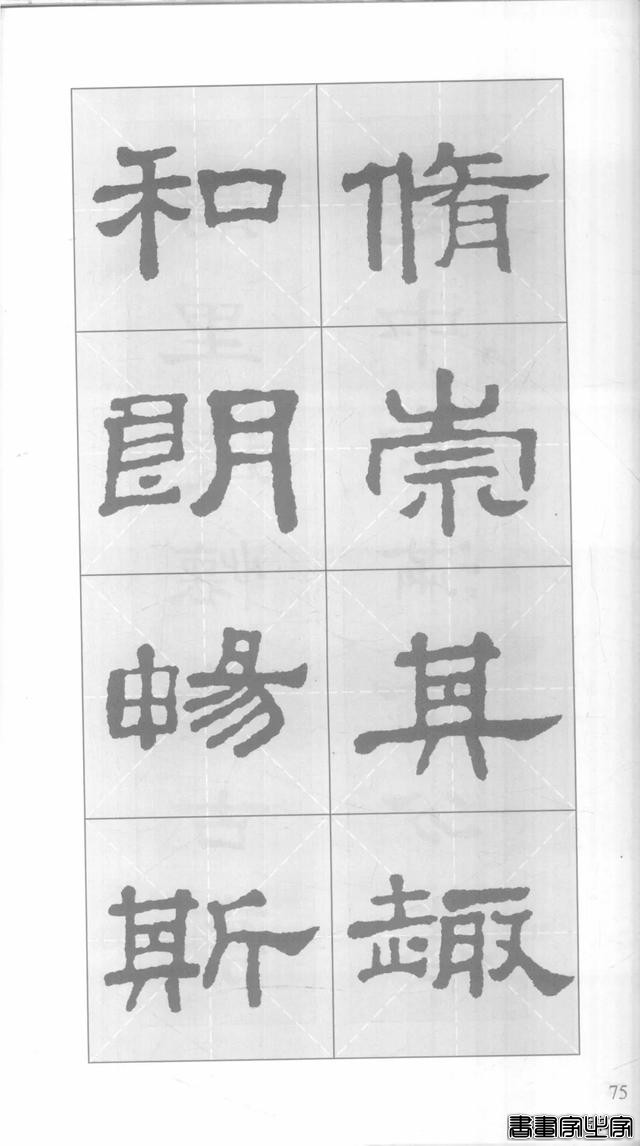 脩崇其趣
和朗暢斯
75
書畫家必字